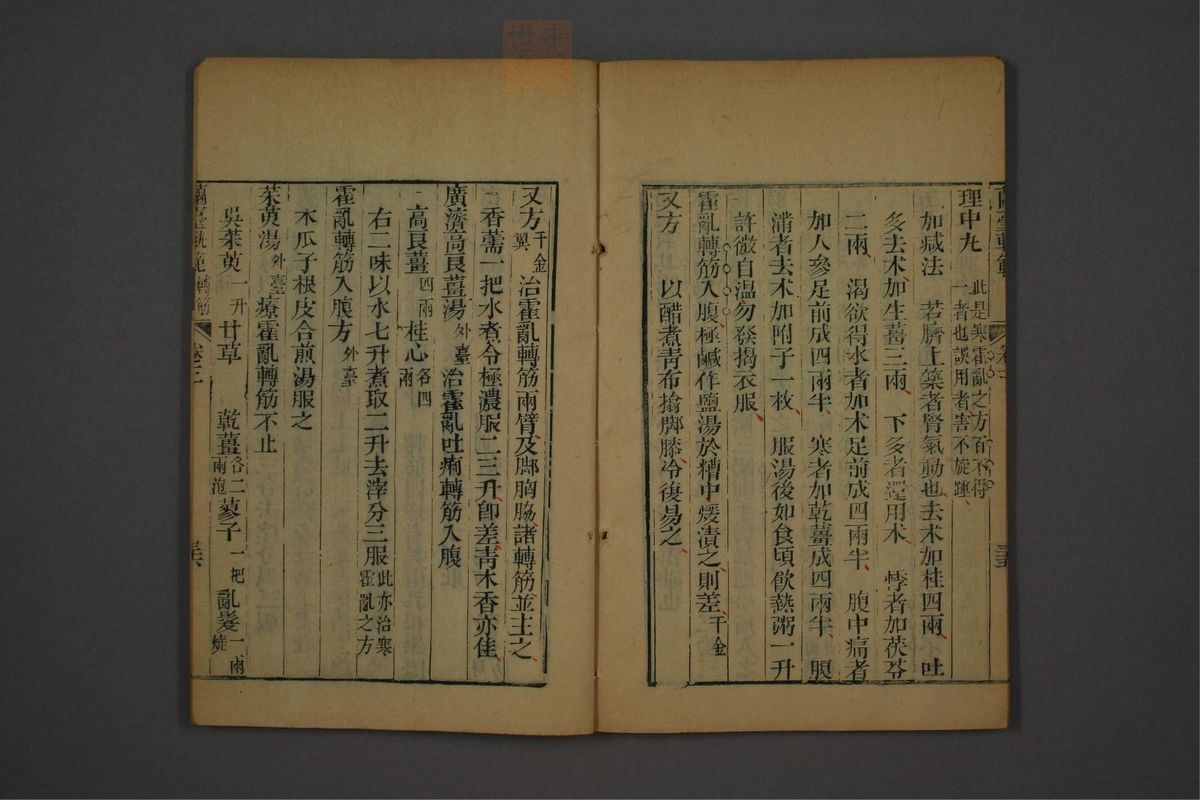 蘭臺軌範 卷三 三五
理中丸 此是寒霍亂之方百不得一者也誤用者害不旋踵
加減法 若臍上築者腎氣動也去术加桂四兩 吐
多去术加生薑三兩 下多者還用术 悸者加茯苓
二兩 渴欲得水者加术足前成四兩半 腹中痛者
加人參足前成四兩半 寒者加乾薑成四兩半 腹
滿者去术加附子一枚 服湯後如食頃飲熱粥一升
許微自溫勿發揭衣服
霍亂轉筋入腹極鹹作鹽湯於糟中煖漬之則差千金
又方 以醋煮青布搨脚膝冷復易之
又方千金翼 治霍亂轉筋兩臂及脚胸脇諸轉筋並主之
香薷一把水煮令極濃服二三升卽差青木香亦佳
廣濟高良薑湯外臺 治霍亂吐痢轉筋入腹
高良薑四兩 桂心各四兩
右二味以水七升煮取二升去滓分三服此亦治寒霍亂之方
霍亂轉筋入腹方外臺
木瓜子根皮合煎湯服之
茱萸湯外臺 療霍亂轉筋不止
吳茱萸一升 甘草 乾薑各二兩泡 蓼子一把 亂髮一兩燒
蘭臺軌範 轉筋 卷三 三六